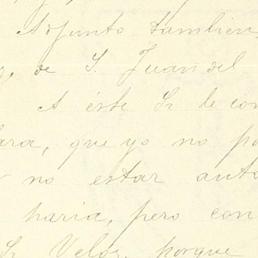 Adjunto tambien
de S. Juan del
A éste Sr de con
ara, que yo no po
no estar auto
haria, pero con
Sr Velos, porque